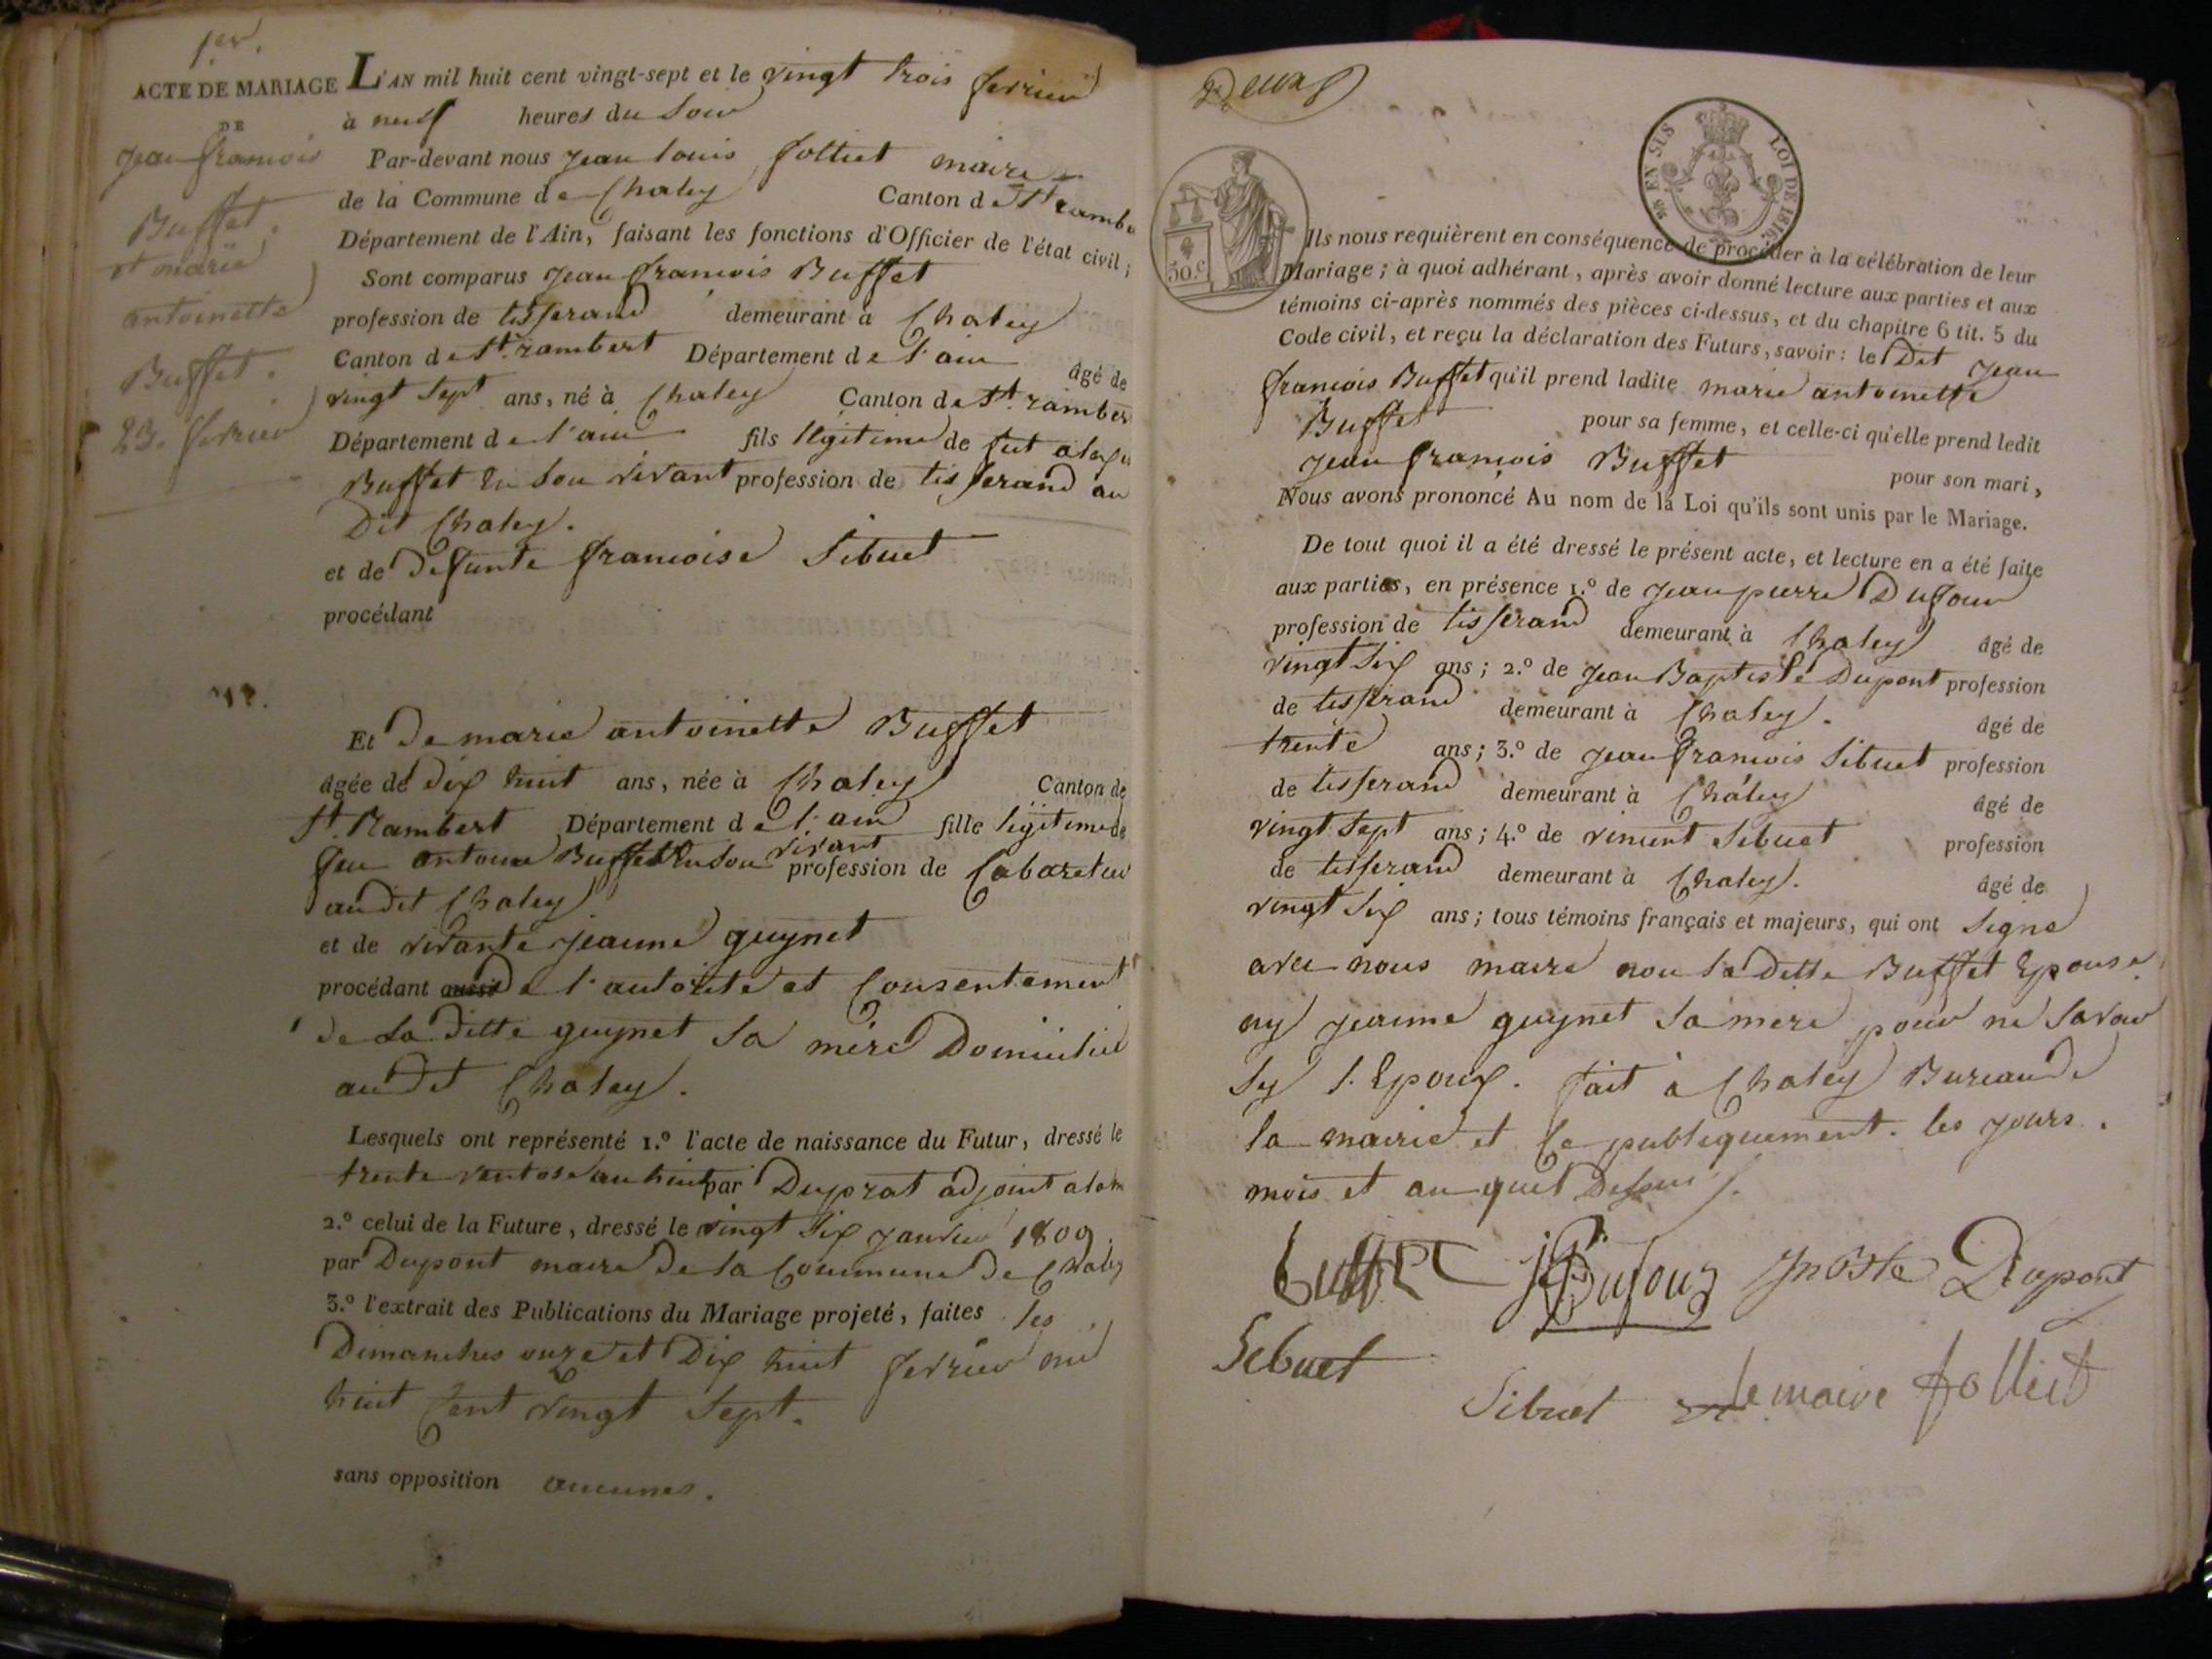 1er.
ACTE DE MARIAGE
DE
jean francois
Buffet.
et marie
antoinette
Buffet.
23. fevrier
L'AN mil huit cent vingt-sept et le vingt trois fevrier
à neuf heures du soir
Par-devant nous jean louis folliet maire
de la Commune de Chaley Canton de St rambe
Département de l'Ain, faisant les fonctions d'Officier de l'état civil;
Sont comparus jean francois Buffet
profession de tisserand demeurant à Chaley
Canton de St. rambert Département de l'ain âgé de
vingt sept ans, né à Chaley Canton de St. ramber
Département de l'ain fils légitime de fut
Buffet en son vivant profession de tisserand au
Dit Chaley.
et de defunte francoise Sibuet
procédant
Et De marie antoinette Buffet
âgée de dix huit ans, née à Chaley Canton de
St. Rambert Département de l'ain fille légitime de
feu antoine Buffet en son vivant profession de Cabaretier
audit Chaley
et de vivante jeanne guynet
procédant de l'autorité et Consentement
de la ditte guynet sa mere Domicilié
audit Chaley.
Lesquels ont représenté 1.º l'acte de naissance du Futur, dressé le
trente ventose an huit par Duprat adjoint
2.º celui de la Future, dressé le vingt six janvier 1809.
par Dupont maire De la Commune De Chaley
3.º l'extrait des Publications du Mariage projeté, faites les
Dimanches onze et Dix huit fevrier mil
huit Cent vingt Sept.
sans opposition aucunes.
Deux
EN SUS LOI DE 1816.
50.c
Ils nous requièrent en conséquence de procéder à la célébration de leur
Mariage; à quoi adhérant, après avoir donné lecture aux parties et aux
témoins ci-après nommés des pièces ci-dessus, et du chapitre 6 tit. 5 du
Code civil, et reçu la déclaration des Futurs, savoir: le Dit jean
francois Buffet qu'il prend ladite marie antoinette
Buffet pour sa femme, et celle-ci qu'elle prend ledit
jean françois Buffet pour son mari,
Nous avons prononcé Au nom de la Loi qu'ils sont unis par le Mariage.
De tout quoi il a été dressé le présent acte, et lecture en a été faite
aux parties, en présence 1.º de jean pierre Dufour
profession de tisserand demeurant à Chaley âgé de
vingt six ans; 2.º de jean Baptiste Dupont profession
de tisserand demeurant à Chaley. âgé de
trente ans; 3.º de jean francois Sibuet profession
de tisserand demeurant à Chaley âgé de
vingt sept ans; 4.º de vincent Sibuet profession
de tisserand demeurant à Chaley. âgé de
vingt six ans; tous témoins français et majeurs, qui ont signé
avec nous maire non la Ditte Buffet Epouse
ny jeanne guynet sa mere pour ne savoir
sy l. Epoux. fait à Chaley Bureau De
la mairie et Ce publiquement. les jours.
mois et an que Dessus.
buffet JP Dufour Dupont
Sebuet
Sibuet le maire folliet